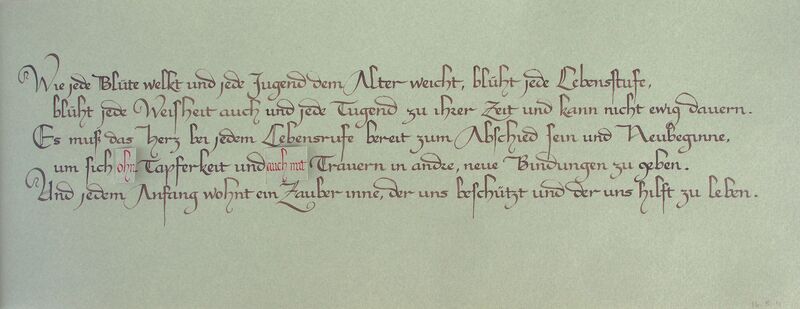 Wie jede Blüte welkt und jede Jugend dem Alter weicht, blüht jede Lebensstufe,
blüht jede Weisheit auch und jede Tugend zu ihrer Zeit und kann nicht ewig dauern.
Es muß das Herz bei jedem Lebensrufe bereit zum Abschied sein und Neubeginne,
um sich ohn Tapferkeit und auch mit Trauern in andre, neue Bindungen zu geben.
Und jedem Anfang wohnt ein Zauber inne, der uns beschützt und der uns hilft zu leben.